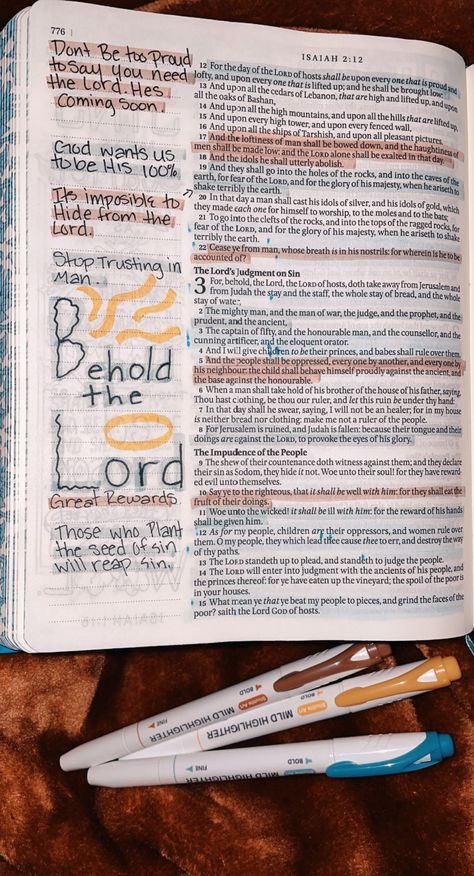 776
ISAIAH 2:12
Dont Be too Proud
to Say You need
the Lord. Hes
Coming Soon.
God wants us
to be His 100%
Its Imposible to
Hide from the
Lord.
Stop Trusting in
Man.
Behold
the
Lord
Great Rewards.
Those who Plant
the seed of sin
will reap sin.
12 For the day of the LORD of hosts shall be upon every one that is proud and
lofty, and upon every one that is lifted up; and he shall be brought low:
13 And upon all the cedars of Lebanon, that are high and lifted up, and upon
all the oaks of Bashan,
14 And upon all the high mountains, and upon all the hills that are lifted up,
15 And upon every high tower, and upon every fenced wall,
16 And upon all the ships of Tarshish, and upon all pleasant pictures.
17 And the loftiness of man shall be bowed down, and the haughtiness of
men shall be made low: and the LORD alone shall be exalted in that day.
18 And the idols he shall utterly abolish.
19 And they shall go into the holes of the rocks, and into the caves of the
earth, for fear of the LORD, and for the glory of his majesty, when he ariseth to
shake terribly the earth.
20 In that day a man shall cast his idols of silver, and his idols of gold, which
they made each one for himself to worship, to the moles and to the bats;
21 To go into the clefts of the rocks, and into the tops of the ragged rocks, for
fear of the LORD, and for the glory of his majesty, when he ariseth to shake
terribly the earth.
22 Cease ye from man, whose breath is in his nostrils: for wherein is he to be
accounted of?
The Lord's Judgment on Sin
3 For, behold, the Lord, the LORD of hosts, doth take away from Jerusalem and
from Judah the stay and the staff, the whole stay of bread, and the whole
stay of water,
2 The mighty man, and the man of war, the judge, and the prophet, and the
prudent, and the ancient,
3 The captain of fifty, and the honourable man, and the counsellor, and the
cunning artificer, and the eloquent orator.
4 And I will give children to be their princes, and babes shall rule over them.
5 And the people shall be oppressed, every one by another, and every one by
his neighbour: the child shall behave himself proudly against the ancient, and
the base against the honourable.
6 When a man shall take hold of his brother of the house of his father, saying,
Thou hast clothing, be thou our ruler, and let this ruin be under thy hand:
7 In that day shall he swear, saying, I will not be an healer; for in my house
is neither bread nor clothing: make me not a ruler of the people.
8 For Jerusalem is ruined, and Judah is fallen: because their tongue and their
doings are against the LORD, to provoke the eyes of his glory.
The Impudence of the People
9 The shew of their countenance doth witness against them; and they declare
their sin as Sodom, they hide it not. Woe unto their soul! for they have reward-
ed evil unto themselves.
10 Say ye to the righteous, that it shall be well with him: for they shall eat the
fruit of their doings.
11 Woe unto the wicked! it shall be ill with him: for the reward of his hands
shall be given him.
12 As for my people, children are their oppressors, and women rule over
them. O my people, they which lead thee cause thee to err, and destroy the way
of thy paths.
13 The LORD standeth up to plead, and standeth to judge the people.
14 The LORD will enter into judgment with the ancients of his people, and
the princes thereof: for ye have eaten up the vineyard; the spoil of the poor is
in your houses.
15 What mean ye that ye beat my people to pieces, and grind the faces of the
poor? saith the Lord GOD of hosts.
FINE MILD HIGHLIGHTER Shuttle Art BOLD
MILD HIGHLIGHTER Shuttle Art BOLD
FINE MILD HIGHLIGHTER BOLD